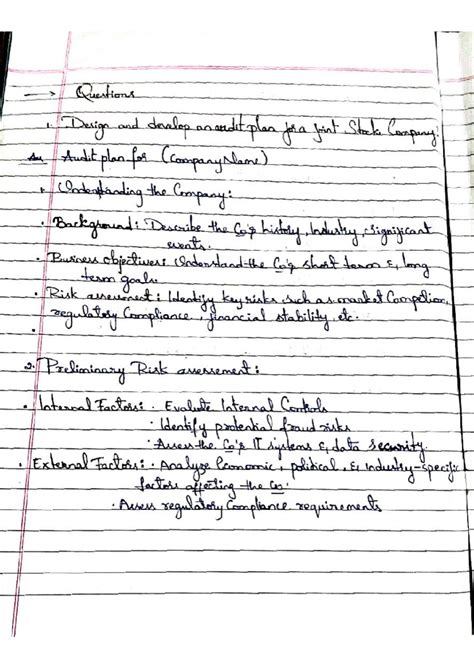 → Questions
1. Design and develop an audit plan for a Joint Stock Company.
Ans Audit plan for (Company Name)
1. Understanding the Company:
• Background: Describe the Co's history, Industry, Significant
events.
• Business objectives: Understand the Co's short term & long
term goals.
• Risk assessment: Identify key risks such as market Competion,
regulatory Compliance, financial stability, etc.
•
2. Preliminary Risk assessement:
• Internal Factors: • Evaluate Internal Controls
• Identify potential fraud risks
• Assess the Co's IT systems & data security.
• External Factors: • Analyze Economic, political, & industry-specific
factors affecting the Co.
• Assess regulatory Compliance requirements